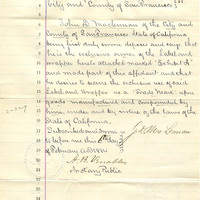 City and County of San Francisco } ss.
John D. McKernan of the City and
County of San Francisco State of California
being first duly sworn deposes and says that
he is the exclusive owner of the Label and
wrapper hereto attached marked "Exhibit A"
and made part of this affidavit and that
he desires to secure the exclusive use of said
Label and Wrapper as a "Trade Mark" upon
goods manufactured and compounded by
him, under and by virtue of the laws of the
State of California.
Subscribed and sworn
to before me this day of
February
Notary Public